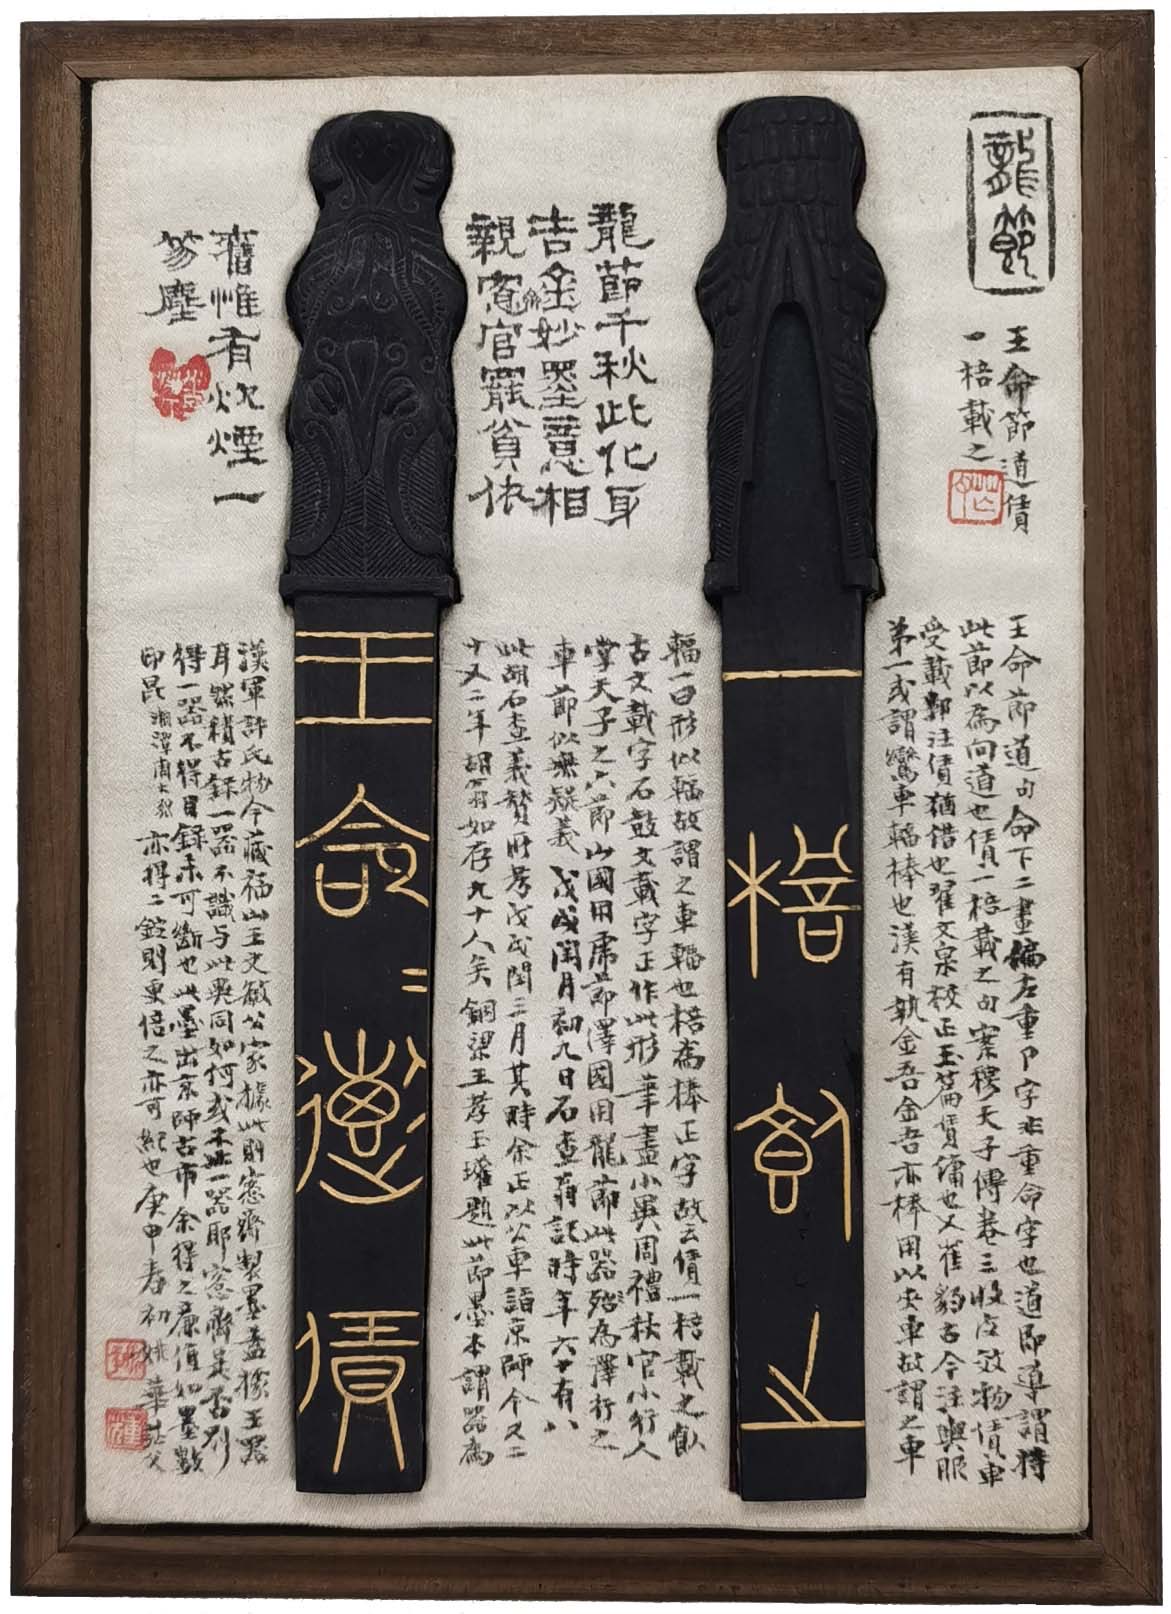 龍節
王命節道債
一棓載之
王命節道句命下二畫偏左重卩字非重命字也道即導謂持
此節以為向道也債一棓載之句案穆天子傳卷三收皮效物債車
受載郭注債猶借也翟文泉校正玉篇債傭也又崔豹古今注輿服
第一或謂鑾車輻棒也漢有執金吾金吾亦棒用以夾車故謂之車
一棓載之
輻一曰形似輻故謂之車輻也棓為棒正字故云債一棓載之
古文載字石鼓文載字正作此形筆畫小異周禮秋官小行人
掌天子之六節山國用虎節澤國用龍節此器殆為澤行之
車節似無疑義戊戌閏月初九日石查翁記時年六十有八
此胡石查義贊所考戊戌閏三月其時余正以公車詣京師今又二
十又二年胡翁如存九十人矣銅梁王孝玉瓘題此節墨本謂器為
龍節千秋此化身
吉金妙墨意相
親窓官罷貧依
舊惟有炊煙一
芴塵
王命道債
漢軍許氏物今藏福山王文敏公家據此則窓齋製墨蓋據王器
耳然積古錄一器不識與此異同如何或不止一器耶窓齋是否別
得一器不得目錄未可斷也此墨出京師古市余得之廉值如墨數
印昆湘潭周大烈亦得二錠則更倍之亦可紀也庚申春初姚華茫父